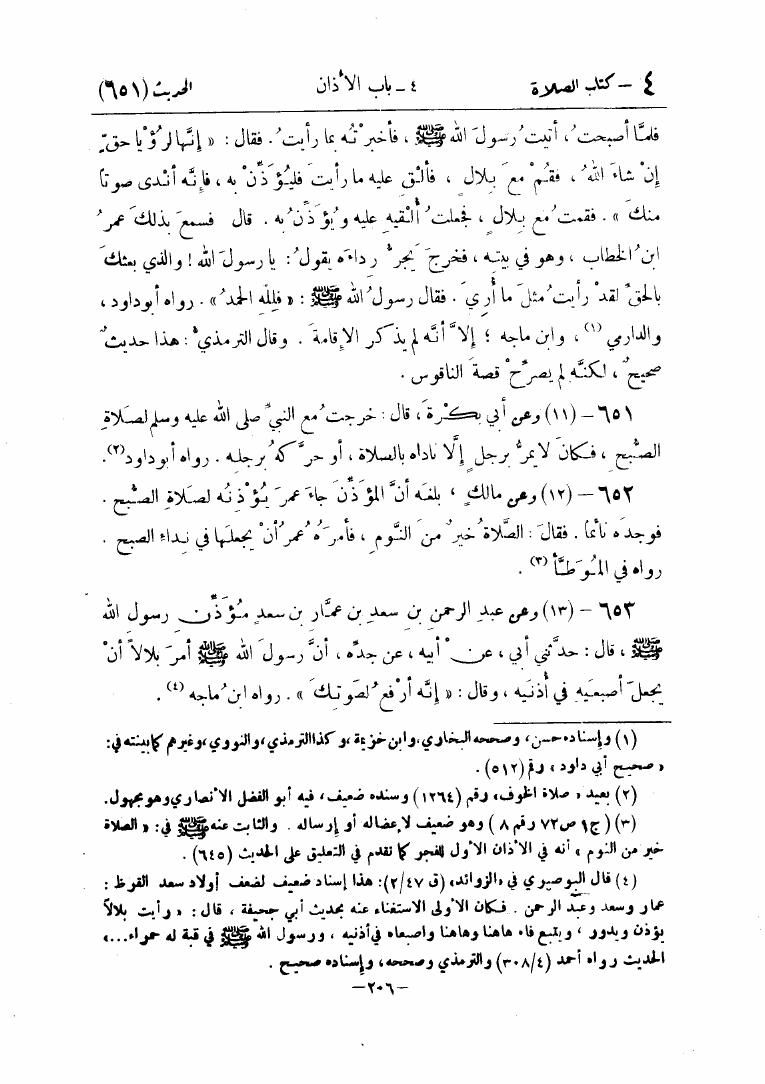 ٤ – كتاب الصلاة ٤ – باب الأذان الحديث (٦٥١)
فلمَّا أصبحتُ، أتيتُ رسولَ الله ﷺ، فأخبرْتُه بما رأيتُ. فقال: «إنَّها لرُؤْيا حقٍّ
إنْ شاءَ اللهُ، فقُمْ معَ بِلالٍ، فألْقِ عليه ما رأيتَ فليُؤَذِّنْ به، فإنَّه أنْدى صوتاً
منكَ». فقمتُ معَ بلالٍ، فجعلتُ أُلْقيهِ عليه ويُؤَذِّنُ به. قال فسمعَ بذلكَ عمرُ
ابنُ الخطاب، وهو في بيتِه، فخرجَ يَجرُّ رداءَه يقولُ: يا رسولَ الله! والذي بعثكَ
بالحقِّ لقدْ رأيتُ مثلَ ما أُرِيَ. فقال رسولُ الله ﷺ: «فلِلَّهِ الحمدُ». رواه أبو داود،
والدارمي (١)، وابن ماجه؛ إلاَّ أنَّه لم يذكر الإقامةَ. وقال الترمذيُّ: هذا حديثٌ
صحيحٌ، لكنَّه لم يصرِّحْ قصةَ الناقوس.
٦٥١ – (١١) وعن أبي بكْرةَ، قال: خرجتُ مع النبيِّ صلى الله عليه وسلم لصلاةِ
الصُّبحِ، فكانَ لا يمرُّ برجلٍ إلَّا ناداه بالصلاةِ، أو حرَّكه برجلِه. رواه أبو داود(٢).
٦٥٢ – (١٢) وعن مالكٍ، بلغَه أنَّ المؤذِّنَ جاءَ عمرَ يُؤْذِنُه لصلاةِ الصُّبحِ.
فوجدَه نائماً. فقالَ: الصَّلاةُ خيرٌ منَ النَّومِ، فأمرَهُ عُمرُ أنْ يجعلَها في نِداءِ الصبح.
رواه في المُوَطَّأ (٣).
٦٥٣ – (١٣) وعن عبدِ الرحمنِ بنِ سعدِ بنِ عمَّارِ بنِ سعدٍ مُؤَذِّنِ رسولِ الله
ﷺ، قال: حدَّثني أبي، عنْ أبيه، عن جدِّه، أنَّ رسولَ الله ﷺ أمرَ بلالاً أنْ
يجعلَ أصبعَيه في أذنَيه، وقال: «إنَّه أرْفعُ لصَوتِكَ». رواه ابنُ ماجه (٤).
(١) وإسناده حسن، وصححه البخاري، وابن خزيمة، وكذا الترمذي، والنووي، وغيرهم كما بينته في:
«صحيح أبي داود» رقم (٥١٢).
(٢) بعيد «صلاة الخوف» رقم (١٢٦٤) وسنده ضعيف، فيه أبو الفضل الأنصاري وهو مجهول.
(٣) (ج١ ص٧٢ رقم ٨) وهو ضعيف لإعضاله أو إرساله. والثابت عنه ﷺ في: «الصلاة
خير من النوم» أنه في الأذان الأول للفجر كما تقدم في التعليق على الحديث (٦٤٥).
(٤) قال البوصيري في «الزوائد» (ق ٢/٤٧): هذا إسناد ضعيف لضعف أولاد سعد القرظ:
عمار وسعد وعبد الرحمن. فكان الأولى الاستغناء عنه بحديث أبي جحيفة، قال: «رأيت بلالاً
يؤذن ويدور، ويتبع فاه هاهنا وهاهنا واصبعاه في أذنيه، ورسول الله ﷺ في قبة له حمراء...»
الحديث رواه أحمد (٣٠٨/٤) والترمذي وصححه، وإسناده صحيح.
–٢٠٦–